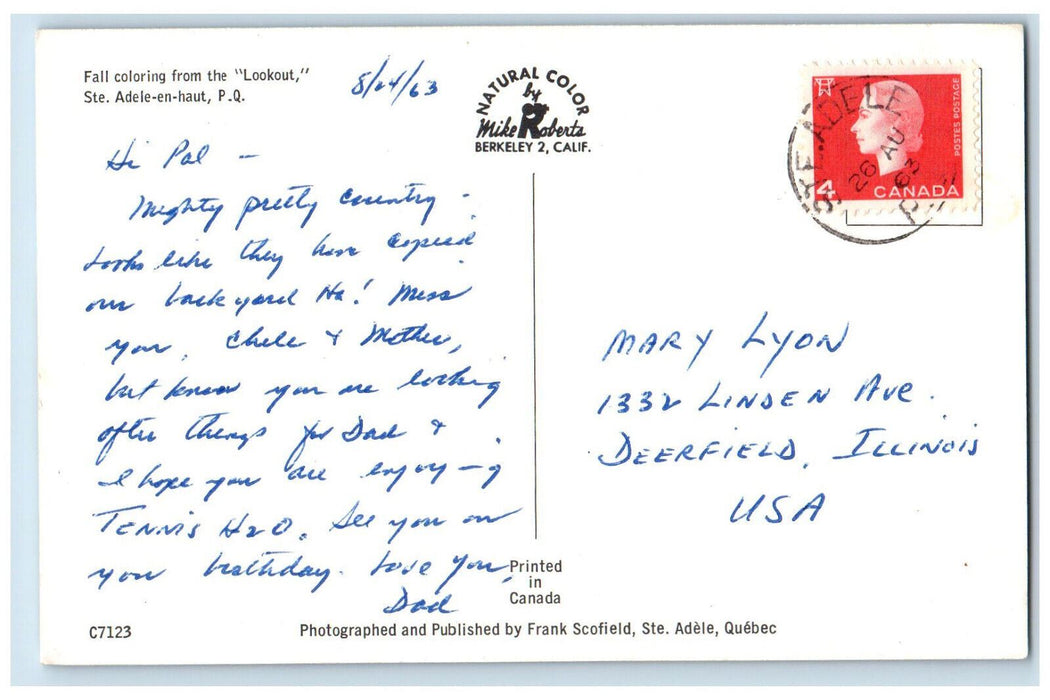 Fall coloring from the "Lookout,"
Ste. Adele-en-haut, P.Q.
8/24/63
NATURAL COLOR
by
Mike Roberts
BERKELEY 2, CALIF.
STE. ADELE
26 AU 63
P.Q.
POSTES POSTAGE
4 CANADA
Hi Pal —
Mighty pretty country -
Looks like they have copied
our back yard Ha! Miss
you, Chele & Mother,
but know you are looking
after things for Dad &
I hope you are enjoy-g
TENNIS H2O. See you on
your birthday. Love You,
Dad
MARY LYON
1332 LINDEN AVE.
DEERFIELD, ILLINOIS
USA
Printed
in
Canada
C7123
Photographed and Published by Frank Scofield, Ste. Adèle, Québec